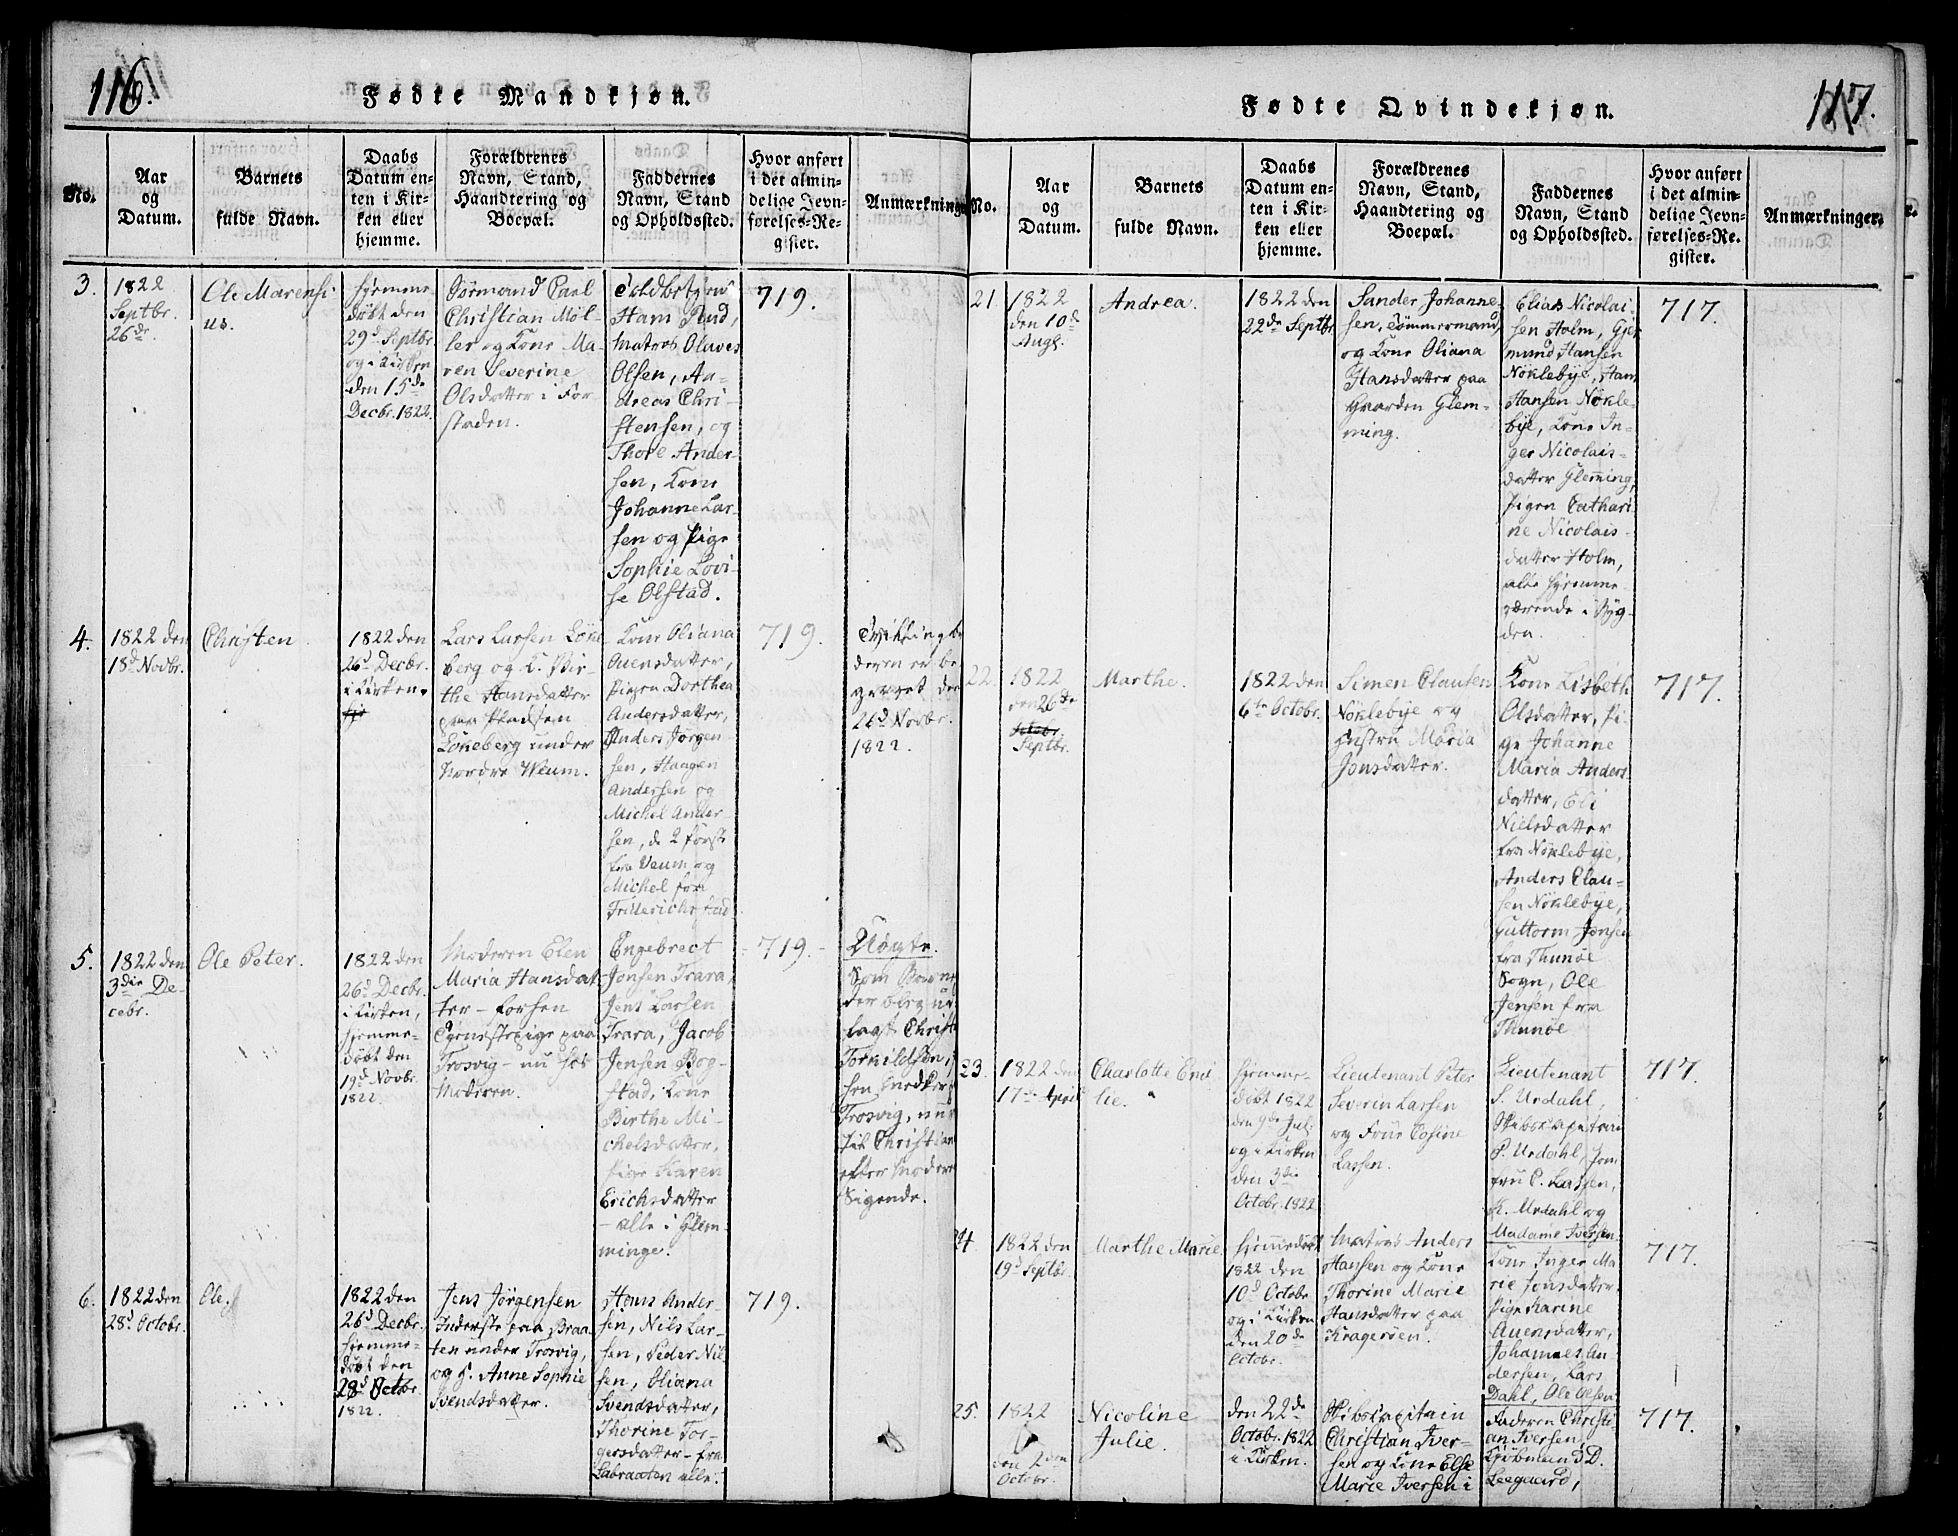 116.
Fødte Mandkjøn.
No.
Aar
og
Datum.
Barnets
fulde Navn.
Daabs
Datum en-
ten i Kir-
ken eller
hjemme.
Forældrenes
Navn, Stand,
Haandtering og
Boepæl.
Faddernes
Navn, Stand
og Opholdssted.
Hvor anført
i det almin-
delige Jevn-
førelses-Re-
gister.
Anmærkninge
3.
1822
Septbr.
26de
Ole Marensi
us.
hjemme-
døbt den
29d Septbr
og i Kirken
den 15de
Decbr. 1822.
Formand Carl
Christian Møl-
ler og Kone Ma-
ren Severine
Olsdatter i For-
staden.
Hans Rud,
Matros Oluves
Olsen, An-
dreas Chri-
stensen, og
Thore Ander-
sen, Kone
Johanne Lar-
sen og Pige
Sophie Lovi-
se Olstad.
719.
4.
1822 den
18d Novbr.
Christen
1822 den
26d Decbr.
i Kirken.
Lars Larsen Løke
berg og K. Bir-
the Hansdatter
paa Pladsen
Løkeberg under
Nordre Weum.
Kone Oliana
Auensdatter,
Pigen Dorthea
Andersdatter,
Anders Jørgen-
sen, Haagen
Andersen og
Michel Ander-
sen, de 2 første
fra Veum, og
Michel fra
Friderichstad.
719.
26d Novbr.
1822.
5.
1822 den
3die De-
cebr.
Ole Peter.
1822 den
26d Decbr.
i Kirken,
hjemme-
døbt den
19d Novbr.
1822.
Moderen Elen
Maria Hansdat-
ter - forhen
Tjenestepige paa
Trosvig - nu hos
Moderen.
Engebrect
Jonsen Trara,
Jens Larsen
Trara, Jacob
Jensen Bog-
stad, Kone
Birthe Mi-
chelsdatter,
Pige Karen
Erichsdatter
- alle i Glem-
minge.
719.
Uægte.
Som Barne
fader blev ud
lagt Christ
Torkildsen,
Trosvig, nu
efter Moderen
Sigende.
6.
1822 den
28d Octobr.
Ole.
1822 den
26d Decbr.
hjemme-
døbt den
28d Octbr.
1822.
Jens Jørgensen
Inderste paa Braa-
ten under Trosvig,
og H. Anne Sophie
Svendsdatter.
Hans Ander-
sen, Nils Lar-
sen, Peder Nil-
sen, Oliana
Svendsdatter,
Thorine Tor-
gersdatter - fra
alle.
719.
117.
Fødte Qvindekjøn.
No.
Aar
og
Datum.
Barnets
fulde Navn.
Daabs
Datum en-
ten i Kir-
ken eller
hjemme.
Forældrenes
Navn, Stand,
Haandtering og
Boepæl.
Faddernes
Navn, Stand
og Opholdssted.
Hvor anført
i det almin-
delige Jevn-
førelses-Re-
gister.
Anmærkninger.
21.
1822
den 10de
Augl.
Andrea.
1822 den
22de Septbr
Sander Johanne-
sen, Tømmermand,
og Kone Oliana
Hansdatter paa
Gaarden Glem-
ming.
Elias Nicolai-
sen Holm, Gjer
mund Hansen
Nøklebye, Hans
Hansen Nøkle-
bye, Kone In-
ger Nicolais-
datter Glemming,
Pigen Cathari
ne Nicolais-
datter Holm,
alle hjemme-
værende i Byg-
den.
717.
22
1822
den 26de
Octobr.
Septbr.
Marthe.
1822 den
6te Octobr.
Simen Clausen
Nøklebye og
Hustru Maria
Jonsdatter.
Kone Lisbeth
Olsdatter, Pi-
ge Johanne
Maria Anders
datter, Eli
Nielsdatter
fra Nøklebye,
Anders Clau-
sen Nøklebye,
Guttorm Jonsen
fra Thunøe
Sogn, Ole
Jensen fra
Thunøe
717.
23.
1822 den
17de April
Charlotte Emi
lie.
hjemme-
døbt 1822
den 9de Jul:
og i Kirken
den 3die
Octobr. 1822
Lieutenant Peter
Severin Lassen
og Frue Cosine
Lassen.
Lieutenant
S. Urdahl,
Skibscapitain
P. Urdahl, Jom
fru C. Lassen,
K. Urdahl og
Madame Iversen
717.
24.
1822 den
19d Septbr.
Marthe Marie
hjemmedøbt
1822 den
10d Octobr
og i Kirken
den 20de
Octobr.
Matros Anders
Hansen og Kone
Thorine Marie
Hansdatter paa
Kragerøen.
Kone Inger Ma
rie Jonsdatter
Pige Karine
Auensdatter,
Johannes An
dersen, Lars
Dahl, Ole Olsen
717.
25.
1822
den 2den
Octobr.
Nicoline
Julie.
den 22de
Octobr. 1822
i Kirken.
Skibscapitain
Christian Iver-
sen og Kone Else
Marie Iversen i
Faderen Christi-
an Iversen,
Kjøbmand D.
Leegaard,
717.